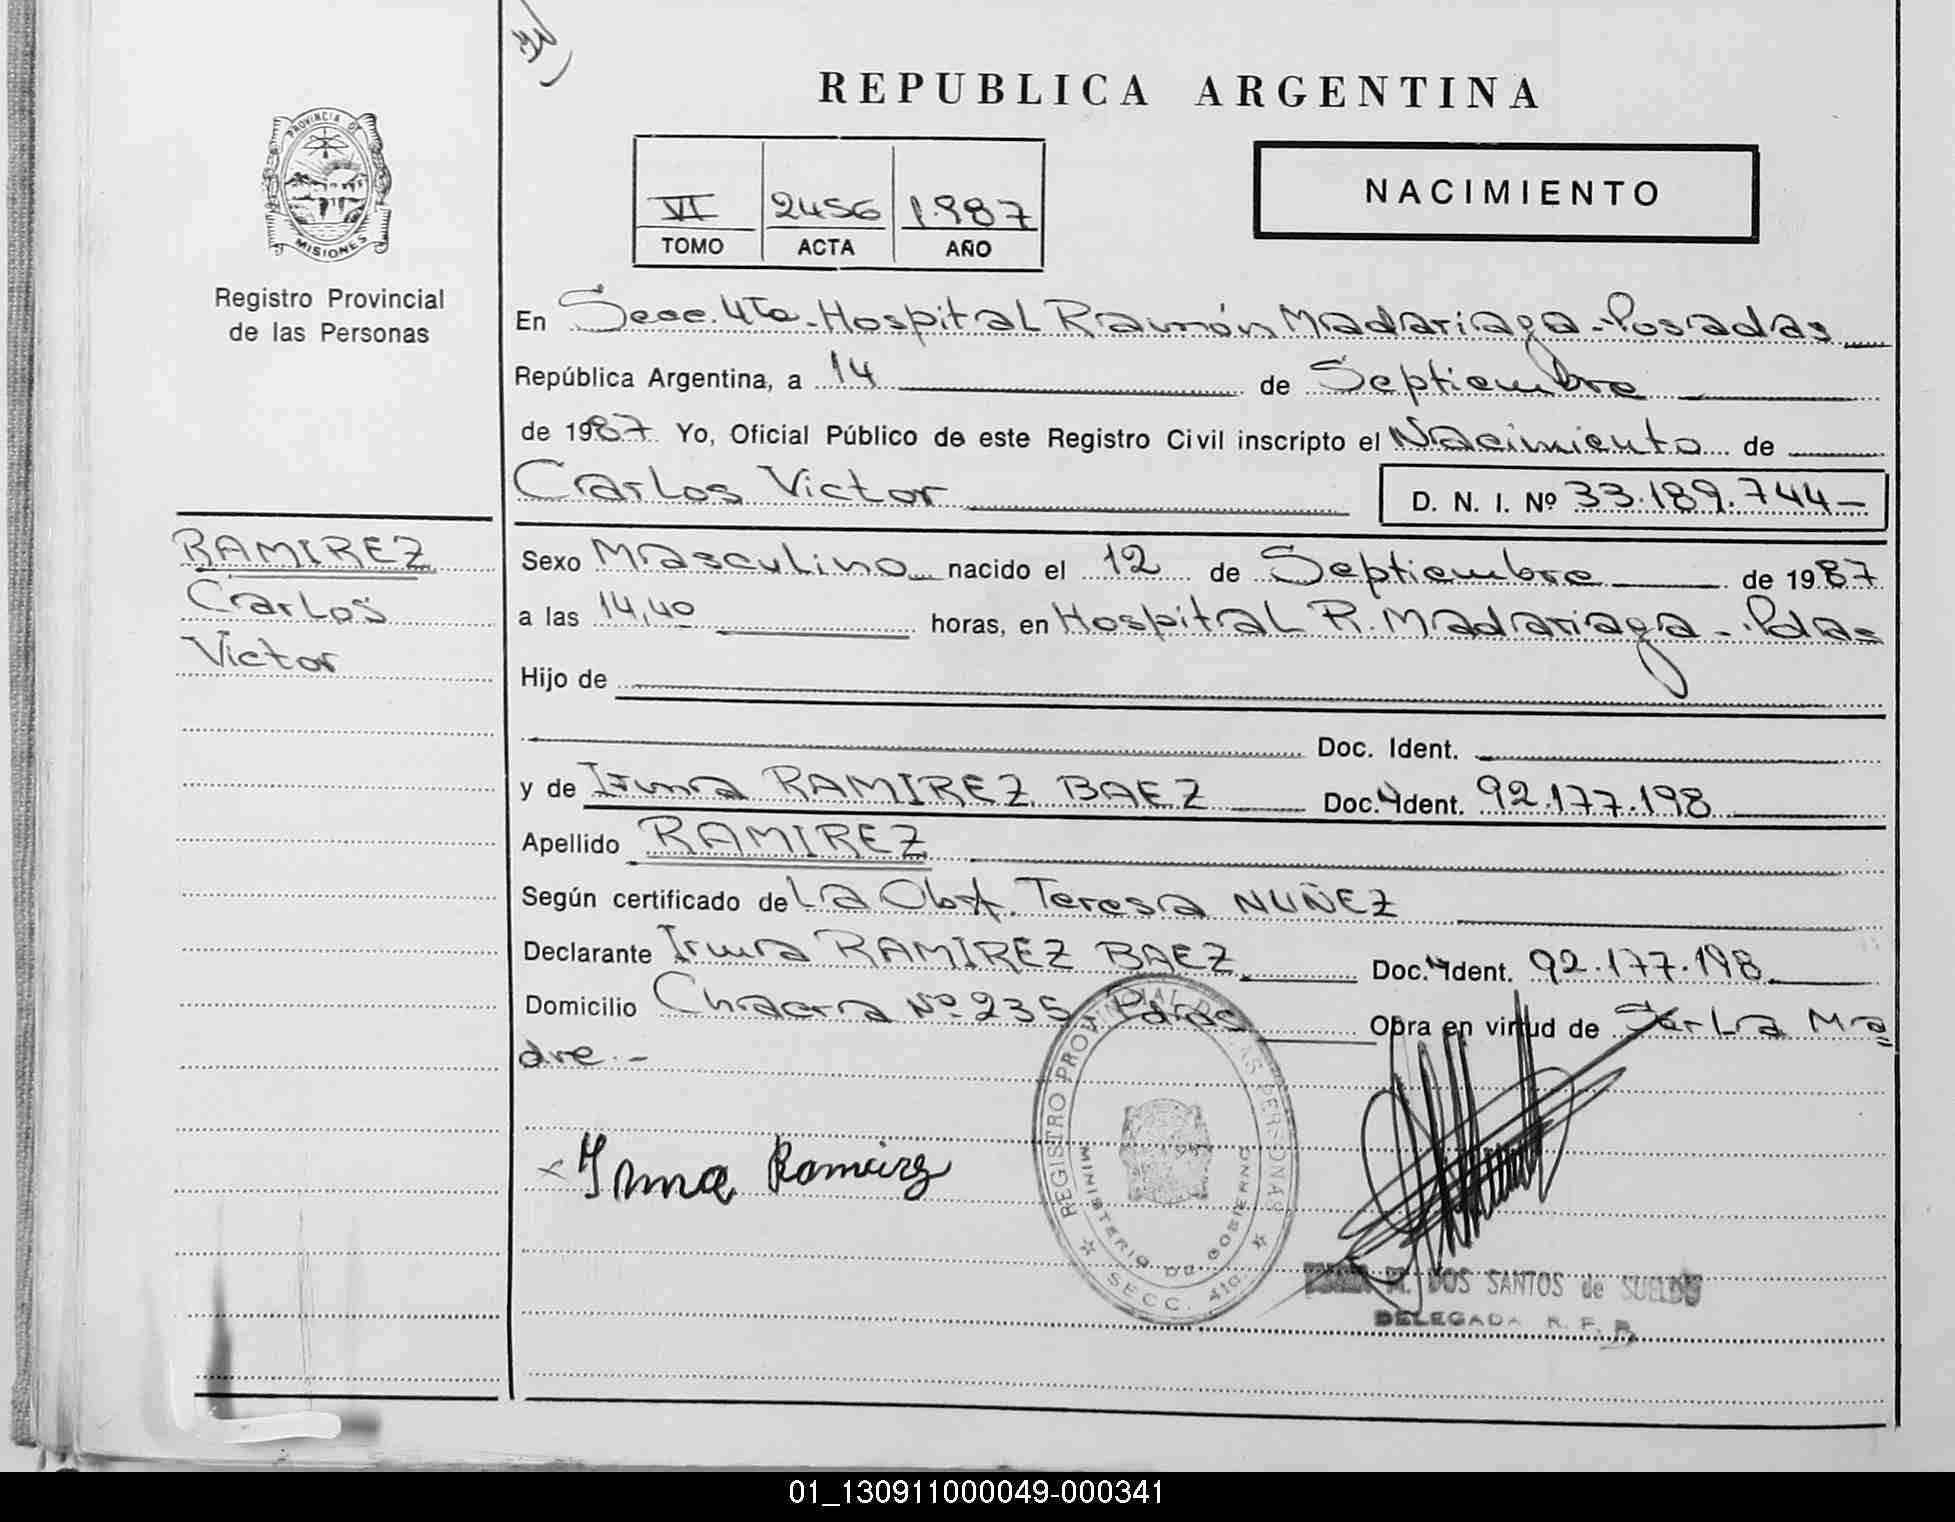 REPUBLICA ARGENTINA
PROVINCIA DE
MISIONES
Registro Provincial
de las Personas
VI 2456 1.987
TOMO ACTA AÑO
NACIMIENTO
En Secc. 4ta - Hospital Ramón Madariaga - Posadas
República Argentina, a 14 de Septiembre
de 1987 Yo, Oficial Público de este Registro Civil inscripto el Nacimiento de
Carlos Victor D. N. I. Nº 33.189.744-
RAMIREZ
Carlos
Victor
Sexo Masculino nacido el 12 de Septiembre de 1987
a las 14,40 horas, en Hospital R. Madariaga - Pdas
Hijo de
Doc. Ident.
y de Irma RAMIREZ BAEZ Doc. Ident. 92.177.198
Apellido RAMIREZ
Según certificado de La Obst. Teresa NUÑEZ
Declarante Irma RAMIREZ BAEZ Doc. Ident. 92.177.198
Domicilio Chacra Nº 235 Pdas Obra en virtud de Ser La Ma
dre.-
Irma Ramirez
REGISTRO PROVINCIAL DE LAS PERSONAS
MINISTERIO DE GOBIERNO
SECC. 4ta.
M. DOS SANTOS de SUELDO
DELEGADA R. P. P.
01_130911000049-000341